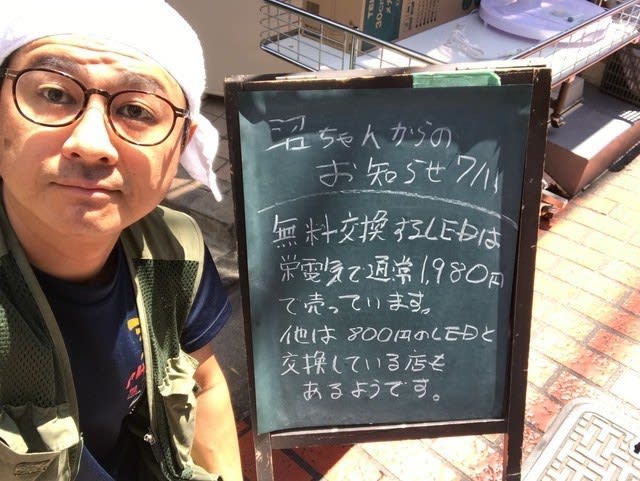 沼ちゃんからの
お知らせ 7/11
無料交換するLEDは
栄電気で通常1,980円
で売っています。
他は800円のLEDと
交換している店も
あるようです。